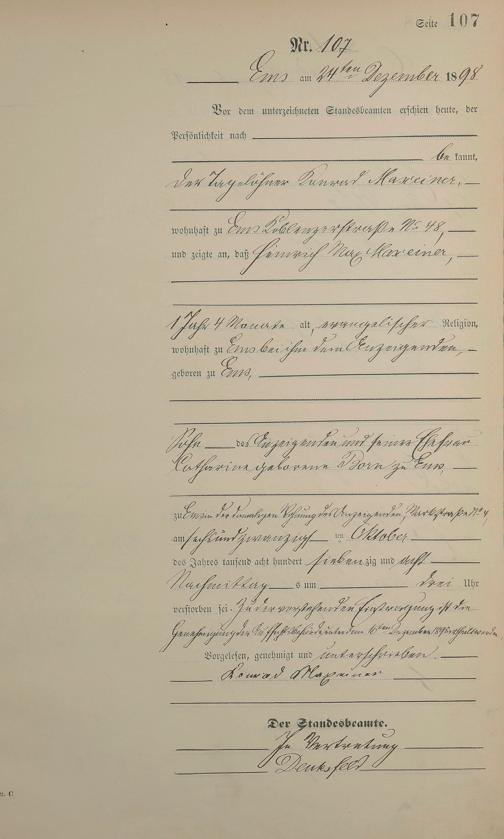 Seite 107
Nr. 107
Ems am 24ten Dezember 1898
Vor dem unterzeichneten Standesbeamten erschien heute, der
Persönlichkeit nach
be kannt,
der Tagelöhner Konrad Maxeiner,
wohnhaft zu Ems Koblenzerstraße No 48,
und zeigte an, daß Heinrich Max Maxeiner,
1 Jahr 4 Monate alt, evangelischer Religion,
wohnhaft zu Ems bei ihm dem Anzeigenden,
geboren zu Ems,
Sohn des Anzeigenden und seiner Ehefrau
Catharine geborene Born zu Ems,
zu Ems in der damaligen Wohnung des Anzeigenden,
am sechsundzwanzigst en Oktober
des Jahres tausend acht hundert siebenzig und acht
Nachmittag s um drei Uhr
verstorben sei. Zu der vorstehenden Eintragung ist die
Genehmigung der Dezember
Vorgelesen, genehmigt und unterschrieben
Konrad Maxeiner
Der Standesbeamte.
In Vertretung
C